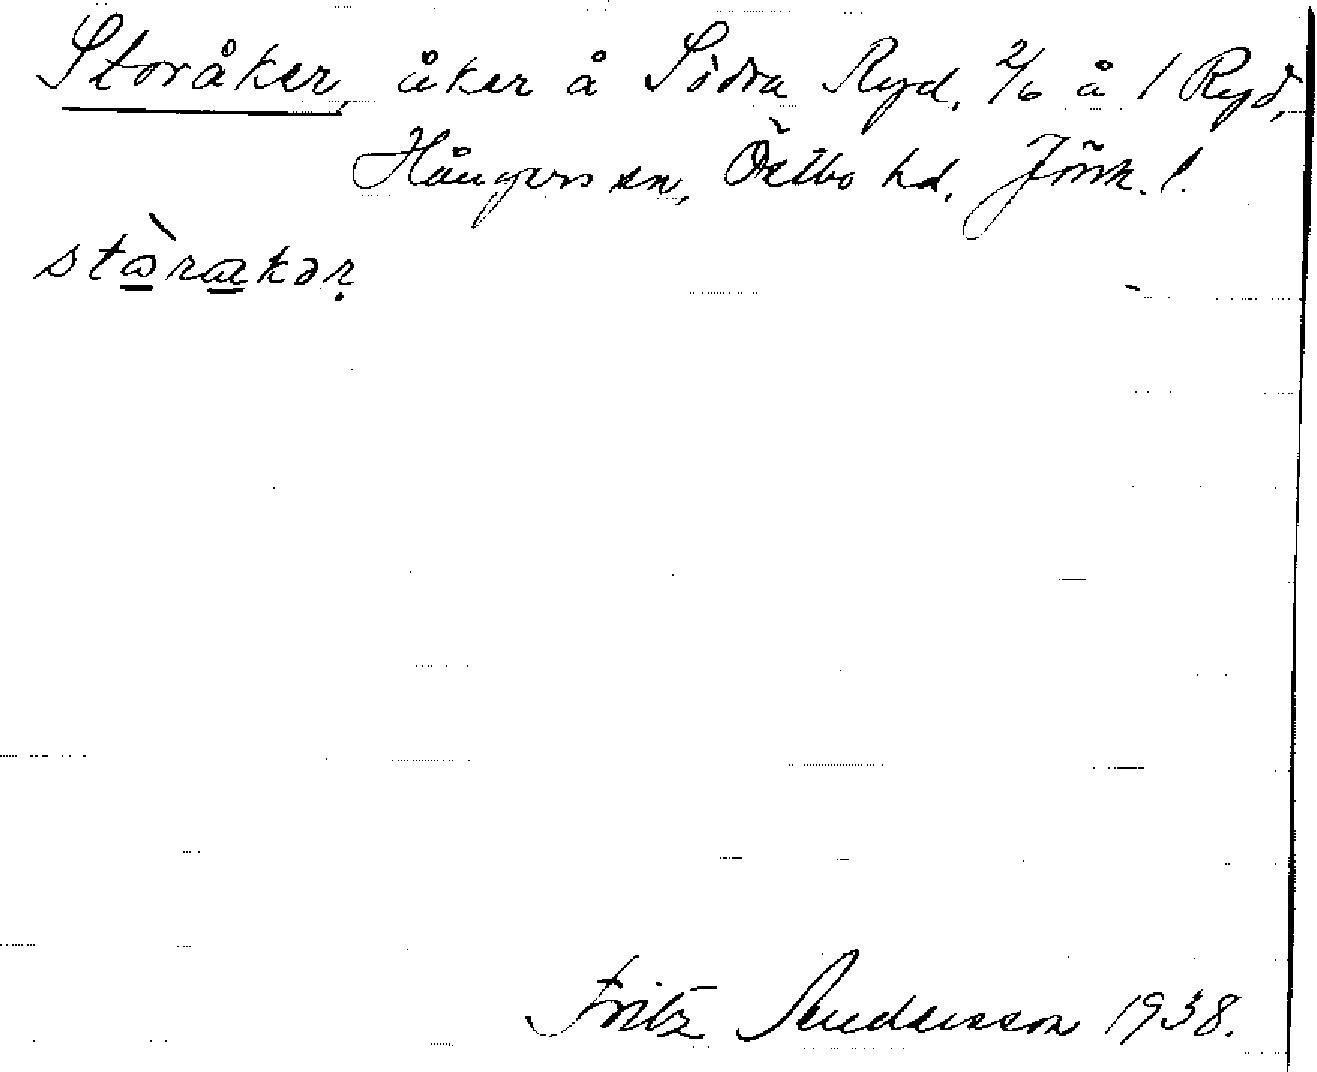 Storåker, åker å Södra Ryd, 2/6 å 1 Ryd,
Hångers sn, Östbo hd, Jönk. l.
stòrakər
Fritz Andersson 1938.